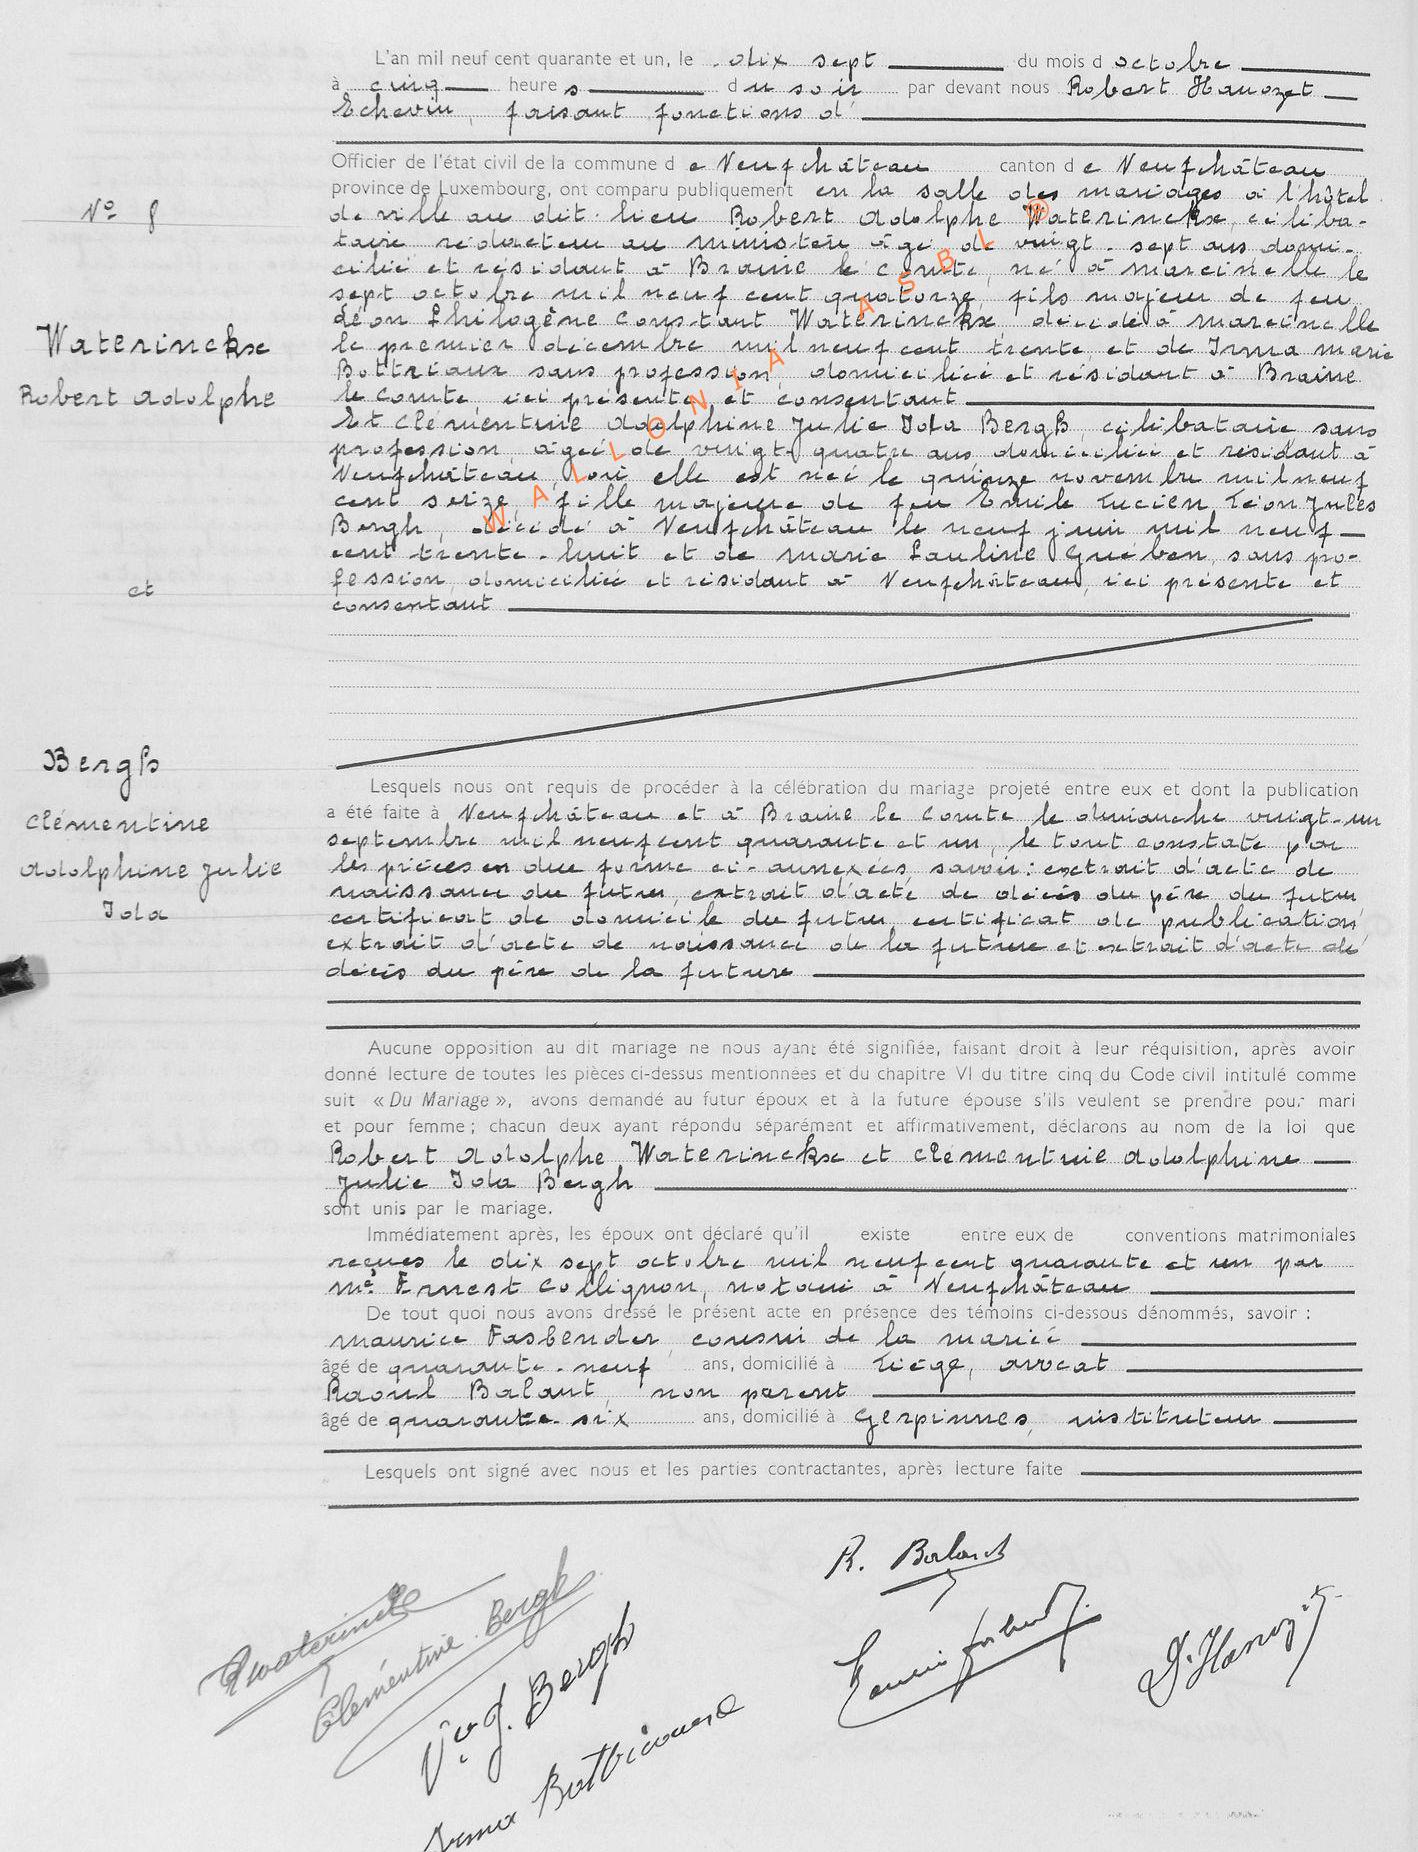 L'an mil neuf cent quarante et un, le dix sept du mois d octobre
à cinq heure s du soir par devant nous Robert Hanozet
Echevin, faisant fonctions d'
Officier de l'état civil de la commune d e Neufchâteau canton d e Neufchâteau
province de Luxembourg, ont comparu publiquement en la salle des mariages à l'hôtel
N° 8
de ville au dit lieu Robert Adolphe Waterinckx, céliba-
taire rédacteur au ministère âgé de vingt-sept ans domi-
cilié et résidant à Braine le Comte, né à Marcinelle le
sept octobre mil neuf cent quatorze, fils majeur de feu
Léon Philogène Constant Waterinckx décédé à Marcinelle
le premier décembre mil neuf cent trente, et de Irma Marie
Bottriaux sans profession, domiciliée et résidant à Braine
le Comte ici présente et consentant
Waterinckx
Robert Adolphe
Et Clémentine Adolphine Julie Ida Bergh, célibataire sans
profession, âgée de vingt-quatre ans domiciliée et résidant à
Neufchâteau, où elle est née le quinze novembre mil neuf
cent seize, fille majeure de feu Emile Lucien Léon Jules
Bergh, décédé à Neufchâteau le neuf juin mil neuf
cent trente-huit et de Marie Pauline Gueben, sans pro-
fession domiciliée et résidant à Neufchâteau, ici présente et
consentant
et
WALLONIA ASBL ®
Bergh
Clémentine
Adolphine Julie
Ida
Lesquels nous ont requis de procéder à la célébration du mariage projeté entre eux et dont la publication
a été faite à Neufchâteau et à Braine le Comte le dimanche vingt-un
septembre mil neuf cent quarante et un, le tout constaté par
les pièces en due forme ci-annexées, savoir: extrait d'acte de
naissance du futur, extrait d'acte de décès du père du futur
certificat de domicile du futur certificat de publication,
extrait d'acte de naissance de la future et extrait d'acte de
décès du père de la future
Aucune opposition au dit mariage ne nous ayant été signifiée, faisant droit à leur réquisition, après avoir
donné lecture de toutes les pièces ci-dessus mentionnées et du chapitre VI du titre cinq du Code civil intitulé comme
suit « Du Mariage », avons demandé au futur époux et à la future épouse s'ils veulent se prendre pour mari
et pour femme ; chacun deux ayant répondu séparément et affirmativement, déclarons au nom de la loi que
Robert Adolphe Waterinckx et Clémentine Adolphine
Julie Ida Bergh
sont unis par le mariage.
Immédiatement après, les époux ont déclaré qu'il existe entre eux de conventions matrimoniales
reçues le dix sept octobre mil neuf cent quarante et un par
Me Ernest Collignon, notaire à Neufchâteau
De tout quoi nous avons dressé le présent acte en présence des témoins ci-dessous dénommés, savoir :
Maurice Fasbender, cousin de la mariée
âgé de quarante-neuf ans, domicilié à Liège, avocat
Raoul Balant, non parent
âgé de quarante-six ans, domicilié à Gerpinnes, instituteur
Lesquels ont signé avec nous et les parties contractantes, après lecture faite
R. Balant
RWaterinckx
Clémentine Bergh
Vve J. Bergh
R. Hanozet